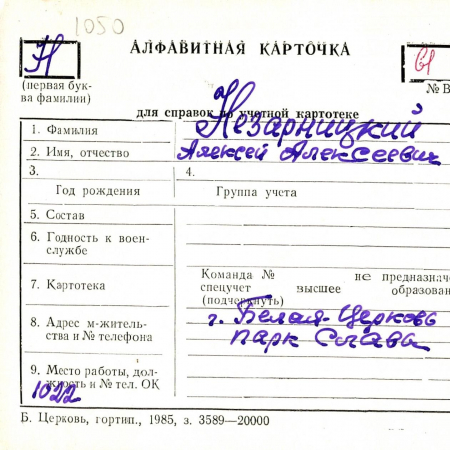 1050
АЛФАВИТНАЯ КАРТОЧКА
Н
61
(первая бук-
ва фамилии)
№ В
для справок по учетной картотеке
1. Фамилия
Незарницкий
2. Имя, отчество
Алексей Алексеевич
3.
4.
Год рождения
Группа учета
5. Состав
6. Годность к воен-
службе
7. Картотека
Команда № не предназначе
спецучет высшее образован
(подчеркнуть)
8. Адрес м-житель-
ства и № телефона
г. Белая-Церковь
парк Слава
9. Место работы, дол-
жность и № тел. ОК
1022
Б. Церковь, гортип., 1985, з. 3589—20000